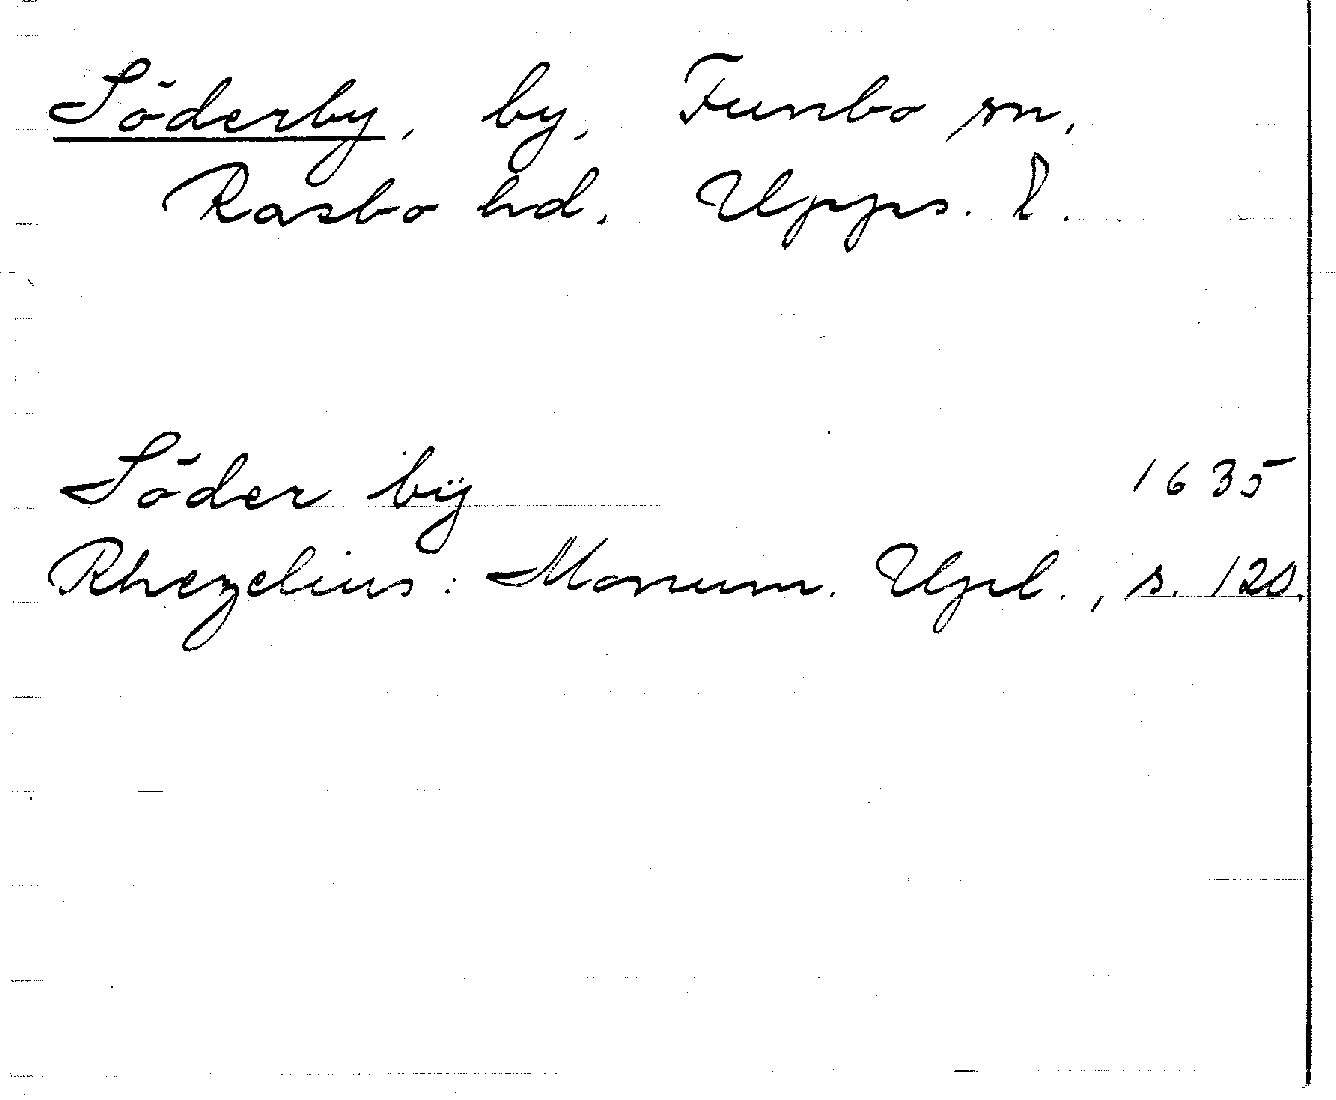 Söderby, by, Funbo sn,
Rasbo hd. Upps. l.
Söder bÿ 1635
Rhezelius: Monum. Upl., s. 120.